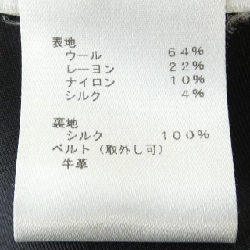 表地
ウール 64%
レーヨン 22%
ナイロン 10%
シルク 4%
裏地
シルク 100%
ベルト(取外し可)
牛革